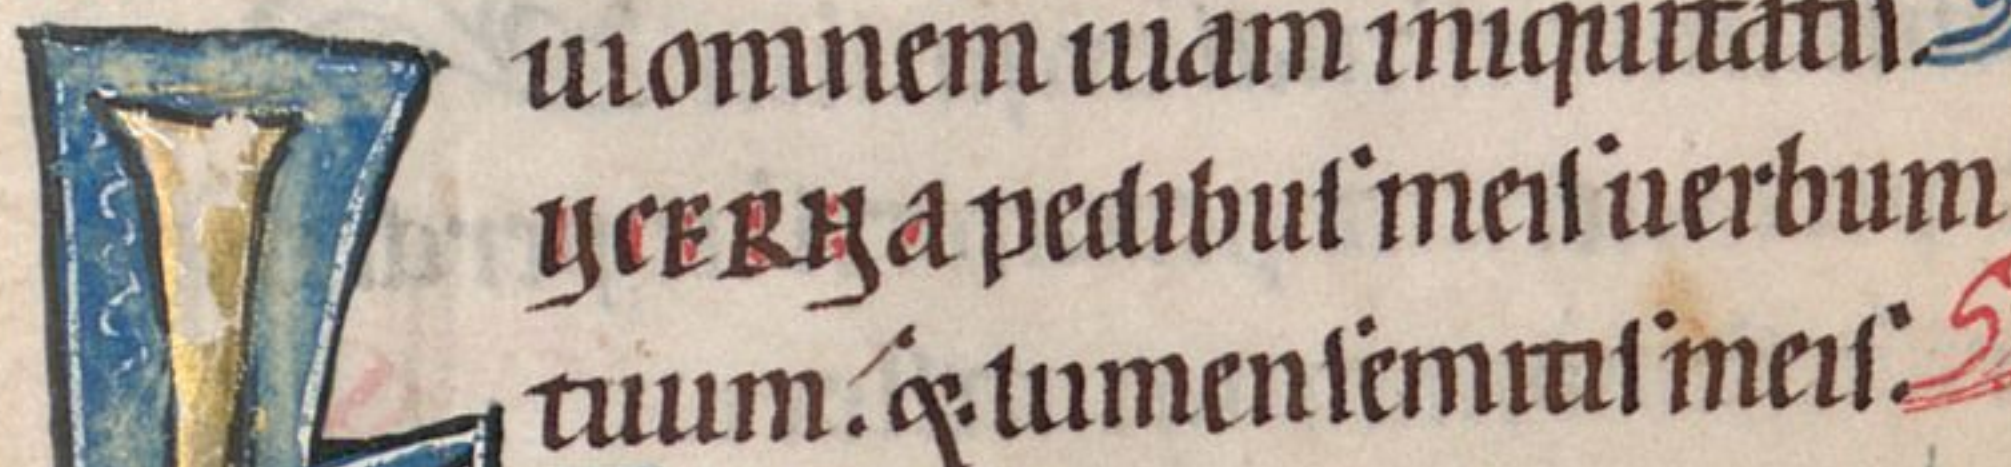 ui omnem uiam iniquitatis.
LUCERNA pedibus meis uerbum
tuum. & lumen semitis meis.